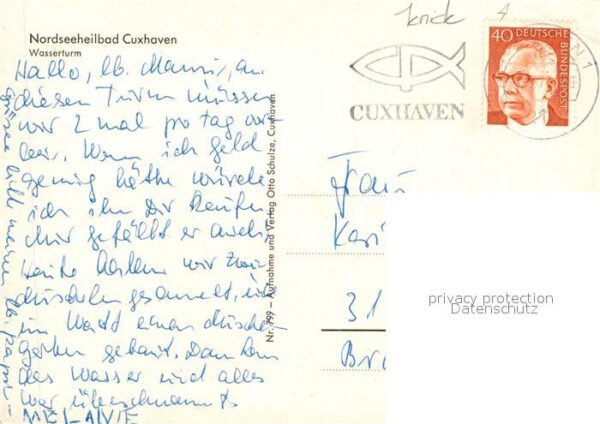 Nordseeheilbad Cuxhaven
Wasserturm
Hallo, lb. Mami, an
diesen Turm müssen
wir 2 mal pro tag vor
bei. Wenn ich geld
genug hätte würde
ich ihn Dir kaufen
Mir gefällt er auch.
Heute haben wir zwei
Muscheln gesammelt, und
im Watt einen Muschel
garten gebaut. Dann kam
das Wasser und alles
war überschwemmt.
MELANIE
Grüsse bitte meinen lb. Papi
Nr. 799 - Aufnahme und Verlag Otto Schulze, Cuxhaven
knick 4
CUXHAVEN
40 DEUTSCHE BUNDESPOST
Frau
Kari
31
Br
privacy protection
Datenschutz